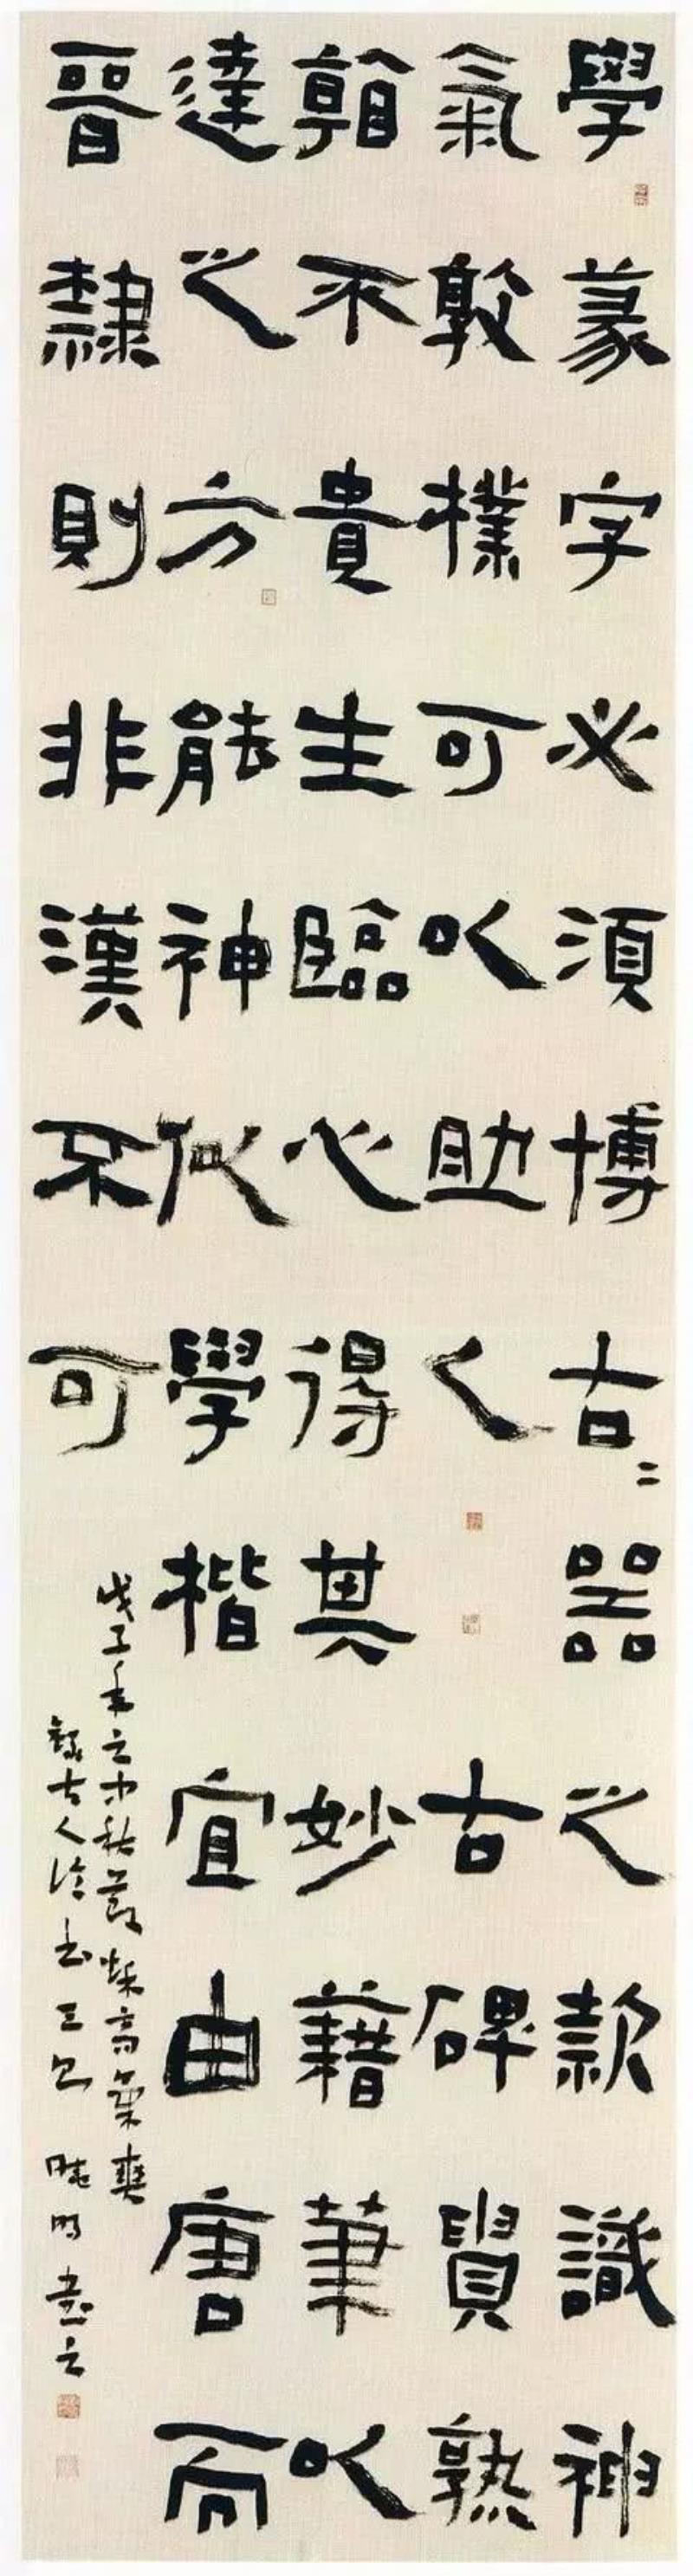 學篆字必須博古〻器之款識神
氣敦樸可以助人古碑貴熟
翫不貴生臨心得其妙藉筆以
達之方能神似學楷宜由唐而
晉隸則非漢不可
戊子年之中秋節秋高氣爽
錄古人論書三則 曉明書之